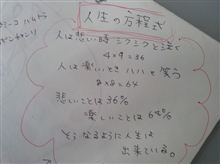 人生の方程式
人は悲しい時 シクシクと泣く
4×9=36
人は楽しいとき ハハハと笑う
8×8=64
悲しいことは36%
楽しいことは64%
そうなるように人生は
出来ている。